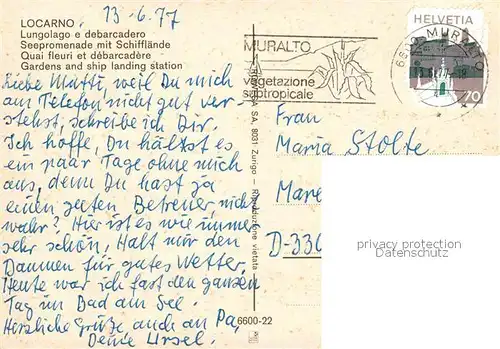 13-6.77
LOCARNO
Lungolago e debarcadero
Seepromenade mit Schifflände
Quai fleuri et débarcadère
Gardens and ship landing station
Liebe Mutti, weil Du mich
am Telefon nicht gut ver-
stehst, schreibe ich Dir.
Ich hoffe, Du hältst es
ein paar Tage ohne mich
aus, denn Du hast ja
einen guten Betreuer, nicht
wahr? Hier ist es wie immer
sehr schön, Halt nur den
Daumen für gutes Wetter,
Heute war ich fast den ganzen
Tag im Bad am See.
Herzliche Grüße auch an Pa,
Deine Ursel.
SA, 8031 Zurigo - Riproduzione vietata
6600-22
MURALTO
vegetazione
subtropicale
HELVETIA
70
MURALTO
Frau
Maria Stolte
Mare
D-330
privacy protection
Datenschutz